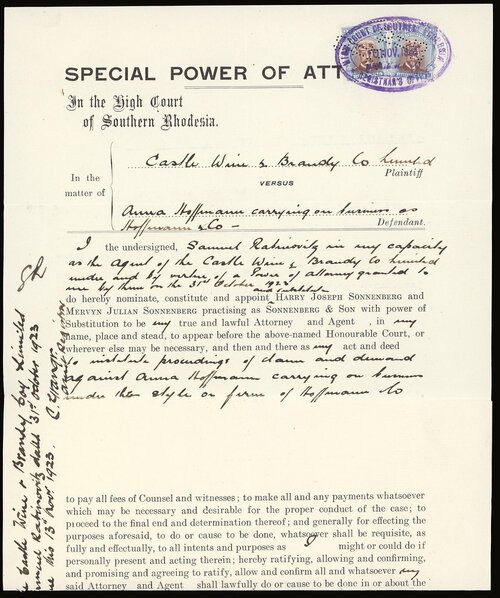 SPECIAL POWER OF ATT
HIGH COURT OF SOUTHERN RHODESIA
NOV
REGISTRAR'S
In the High Court
of Southern Rhodesia.
Castle Wine & Brandy Co Limited
Plaintiff
In the
matter of
VERSUS
Anna Hoffmann carrying on business as
Hoffmann & Co -
Defendant.
I the undersigned, Samuel Rabinovitz in my capacity
as the Agent of the Castle Wine & Brandy Co Limited
under and by virtue of a Power of attorney granted to
me by them on the 31st October 1923
and substitute
do hereby nominate, constitute and appoint HARRY JOSEPH SONNENBERG and
MERVYN JULIAN SONNENBERG practising as SONNENBERG & SON with power of
Substitution to be my true and lawful Attorney and Agent , in my
name, place and stead, to appear before the above-named Honourable Court, or
wherever else may be necessary, and then and there as my act and deed
to institute proceedings of claim and demand
against Anna Hoffmann carrying on business
under the style or firm of Hoffmann & Co
to pay all fees of Counsel and witnesses ; to make all and any payments whatsoever
which may be necessary and desirable for the proper conduct of the case ; to
proceed to the final end and determination thereof ; and generally for effecting the
purposes aforesaid, to do or cause to be done, whatsoever shall be requisite, as
fully and effectually, to all intents and purposes as I might or could do if
personally present and acting therein ; hereby ratifying, allowing and confirming,
and promising and agreeing to ratify, allow and confirm all and whatsoever my
said Attorney and Agent shall lawfully do or cause to be done in or about the
SR
Castle Wine & Brandy Coy Limited
Samuel Rabinovitz dated 31st October 1923
this 13th Novr 1923.